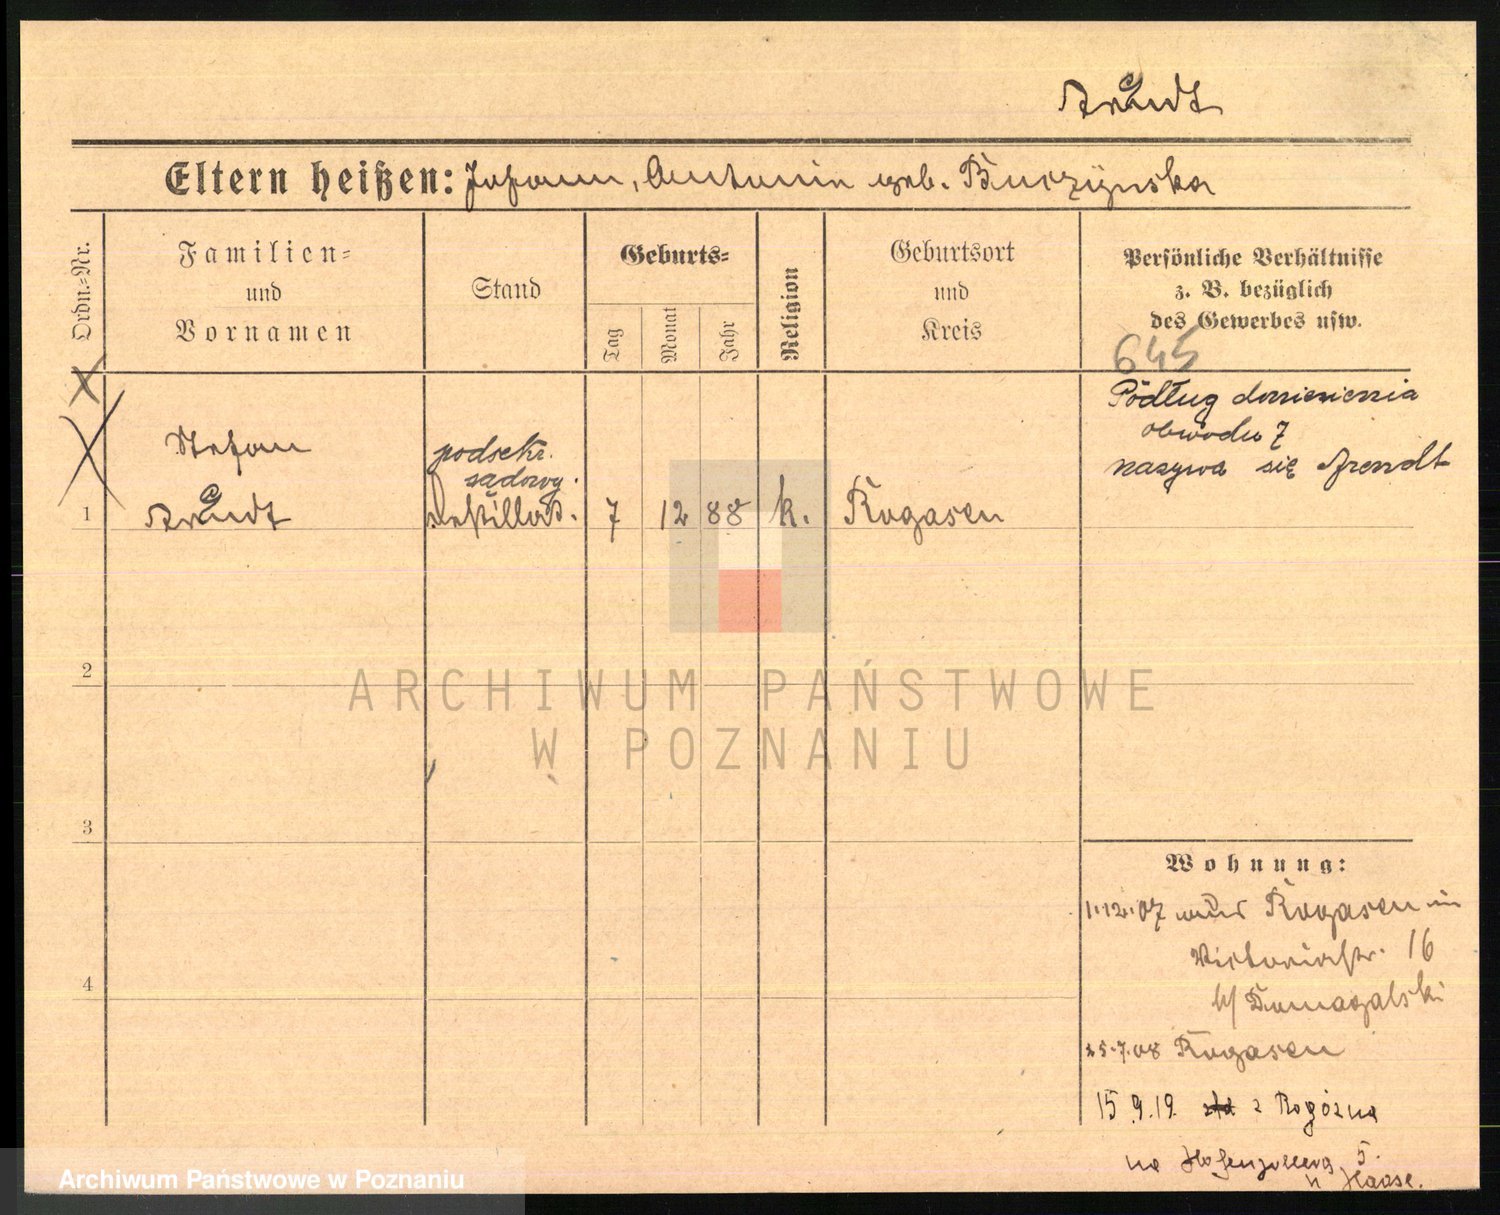 Arndt
Eltern heißen: Johann, Antonin geb. Buczynska
Ordn.-Nr.
Familien- und Vornamen
Stand
Geburts-
Tag
Monat
Jahr
Religion
Geburtsort und Kreis
Persönliche Verhältnisse
z. B. bezüglich
des Gewerbes usw.
645
Stefan
Arndt
podsekr.
sądowy.
1
7
12
88
k.
Rogasen
Podług doniesienia
obwodu 7
nazywa się Arendt
2
3
4
Wohnung:
1.12.07 Rogasen in
Victoriastr. 16
b/ Domagalski
25.7.08 Rogasen
15.9.19. z Rogoźna
na Hohenzollern 5.
u Haase.
ARCHIWUM PAŃSTWOWE
W POZNANIU
Archiwum Państwowe w Poznaniu